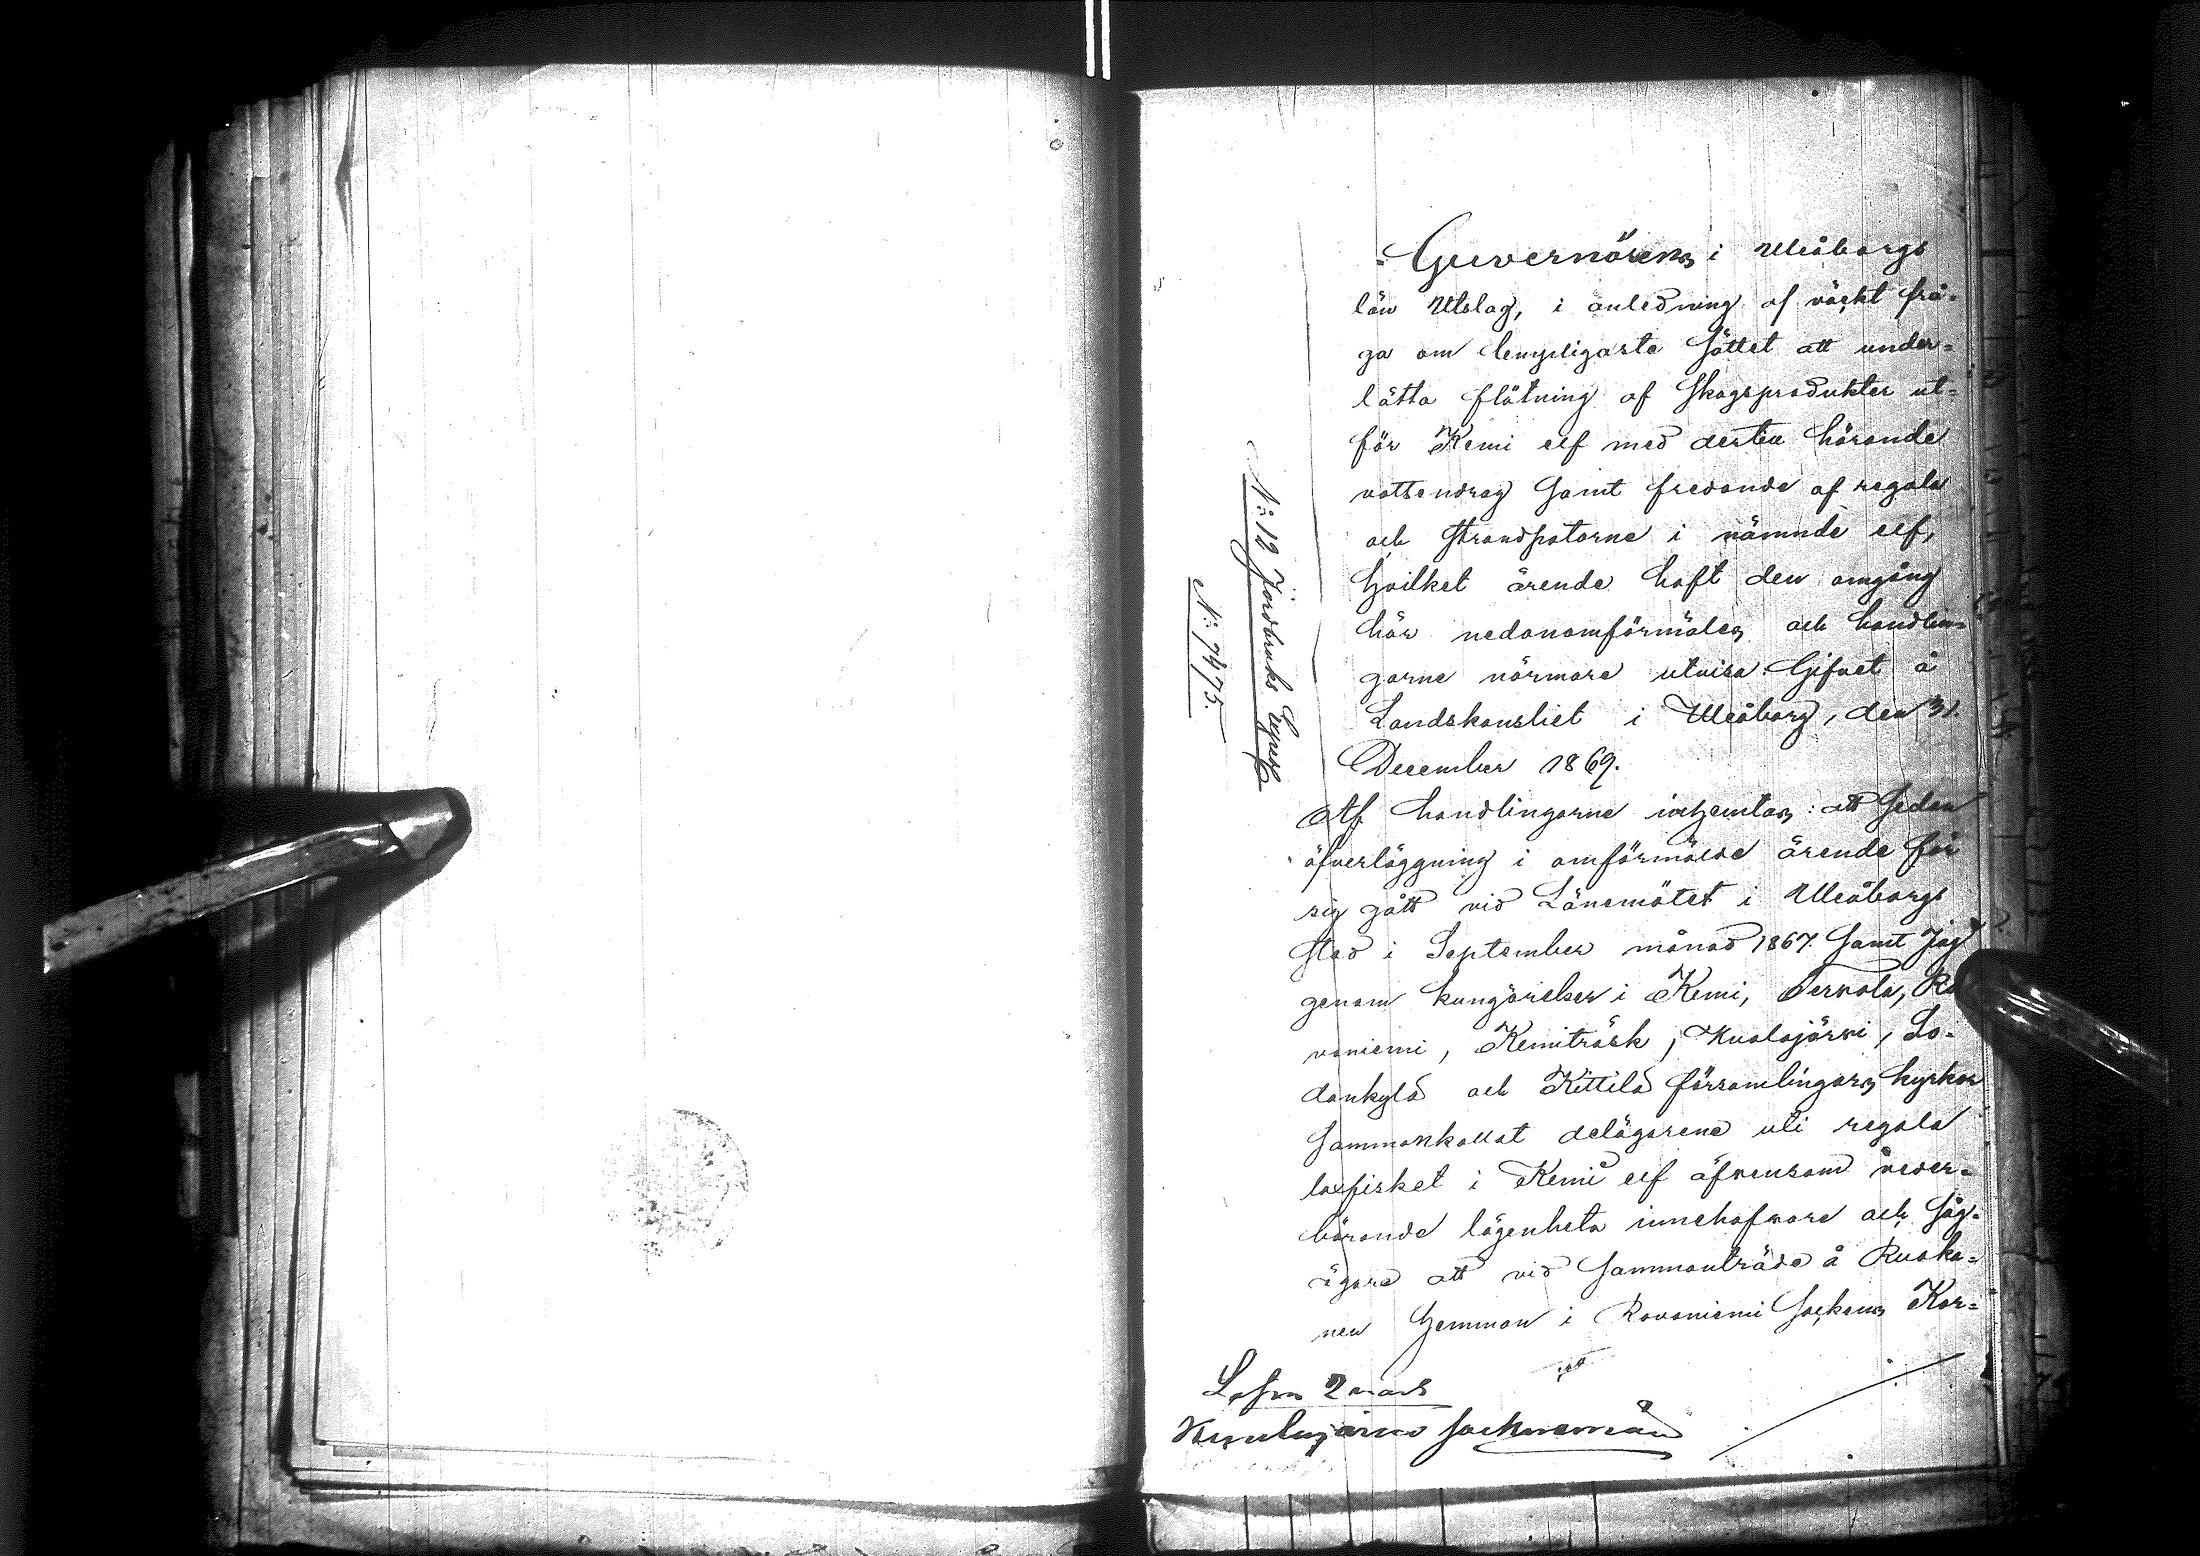 Guvernörens i Uleåborgs
län Utslag, i anledning af väckt frå-
ga om lempligaste sättet att under-
lätta flötning af skogsprodukter ut-
för Kemi elf med dertill hörande
vattendrag samt fredande af regala
och strandpatorne i nämnde elf,
hvilket ärende haft den omgång
här nedanomförmäles och handlin-
garne närmare utvisa. Gifvet å
Landskansliet i Uleåborg, den 31.
December 1869.
Af handlingarne inhemtas: att sedan
öfverläggning i omförmälde ärende för
sig gått vid Länemötet i Uleåborgs
stad i September månad 1867. samt jag
genom kungörelser i Kemi, Tervola, Ro
vaniemi, Kemiträsk, Kuolajärvi, So-
dankylä och Kittilä församlingars kyrkor
sammankallat delägarene uti regala
laxfisket i Kemi elf äfvensom veder-
börande lägenhets innehafvare och såg-
ägare att vid sammanträde å Ruoka-
nen hemman i Rovaniemi Sockens Kor-
Lösen 2 mark
Kuolajärvi sockneman
N: 12 Jordbruks Expedn
N: 7475.